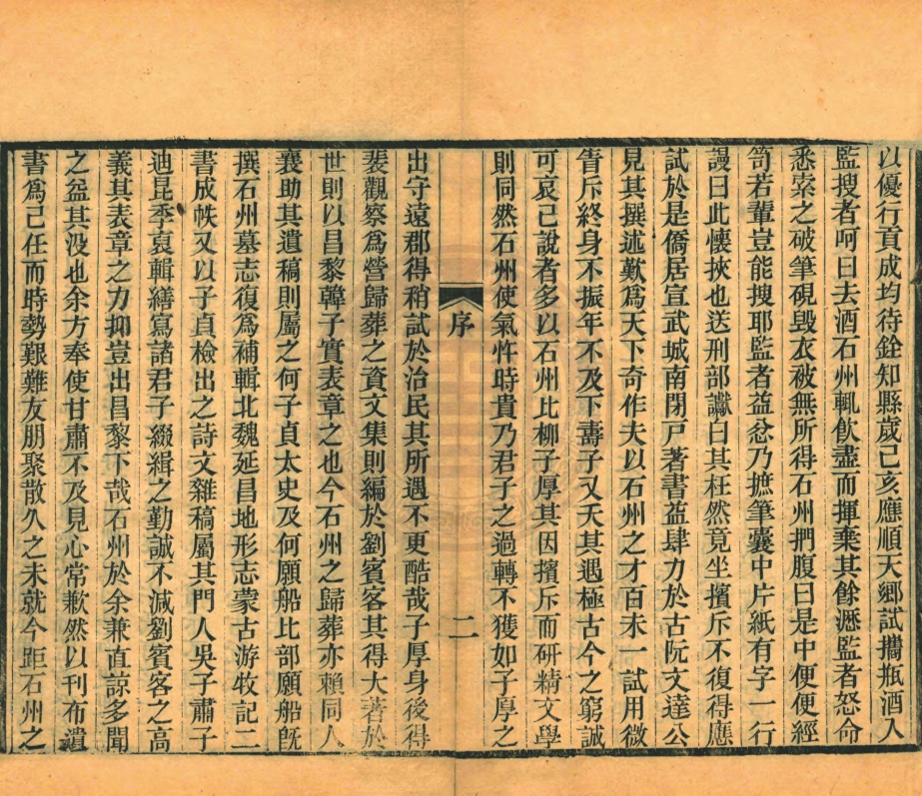 以優行貢成均待銓知縣歲己亥應順天鄉試攜瓶酒入
監搜者呵曰去酒石州輒飲盡而揮棄其餘瀝監者怒命
悉索之破筆硯毀衣被無所得石州捫腹曰是中便便經
笥若輩豈能搜耶監者益忿乃摭筆囊中片紙有字一行
謾曰此懷挾也送刑部讞白其枉然竟坐擯斥不復得應
試於是僑居宣武城南閉戸著書益肆力於古阮文達公
見其撰述歎爲天下奇作夫以石州之才百未一試用微
眚斥終身不振年不及下壽子又夭其遇極古今之窮誠
可哀已說者多以石州比柳子厚其因擯斥而研精文學
則同然石州使氣忤時貴乃君子之過轉不獲如子厚之
序
二
出守遠郡得稍試於治民其所遇不更酷哉子厚身後得
裴觀察爲營歸葬之資文集則編於劉賓客其得大著於
世則以昌黎韓子實表章之也今石州之歸葬亦賴同人
襄助其遺稿則屬之何子貞太史及何願船比部願船旣
撰石州墓志復爲補輯北魏延昌地形志蒙古游牧記二
書成帙又以子貞檢出之詩文雜稿屬其門人吳子肅子
迪昆季裒輯繕寫諸君子綴緝之勤誠不減劉賓客之高
義其表章之力抑豈出昌黎下哉石州於余兼直諒多聞
之益其没也余方奉使甘肅不及見心常歉然以刊布遺
書爲己任而時勢艱難友朋聚散久之未就今距石州之